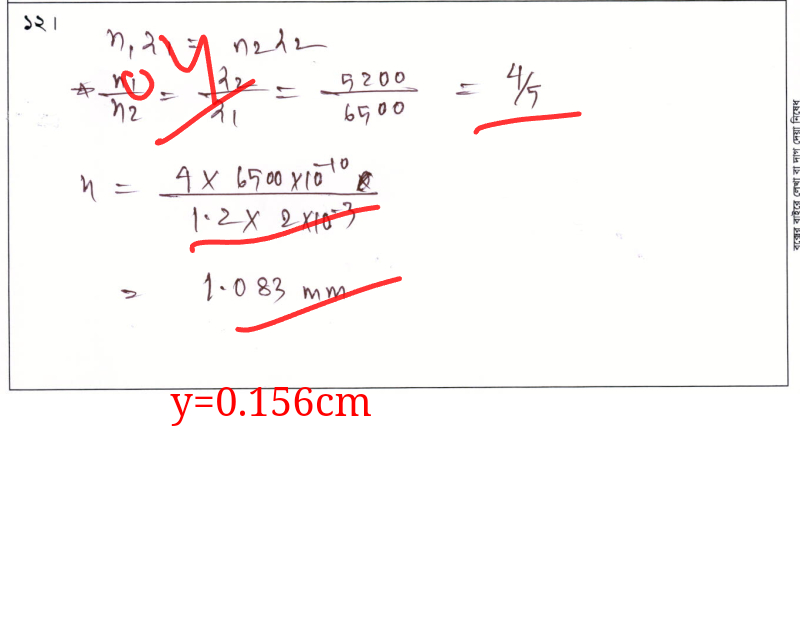 ১২।
n₁λ₁ = n₂λ₂
n₁/n₂ = λ₂/λ₁ = 5200/6500 = 4/5
0 y
x = 4 × 6500×10⁻¹⁰ / 1.2 × 2×10⁻³
= 1.083 mm
y=0.156cm
বক্সের বাইরে লেখা বা দাগ দেয়া নিষেধ